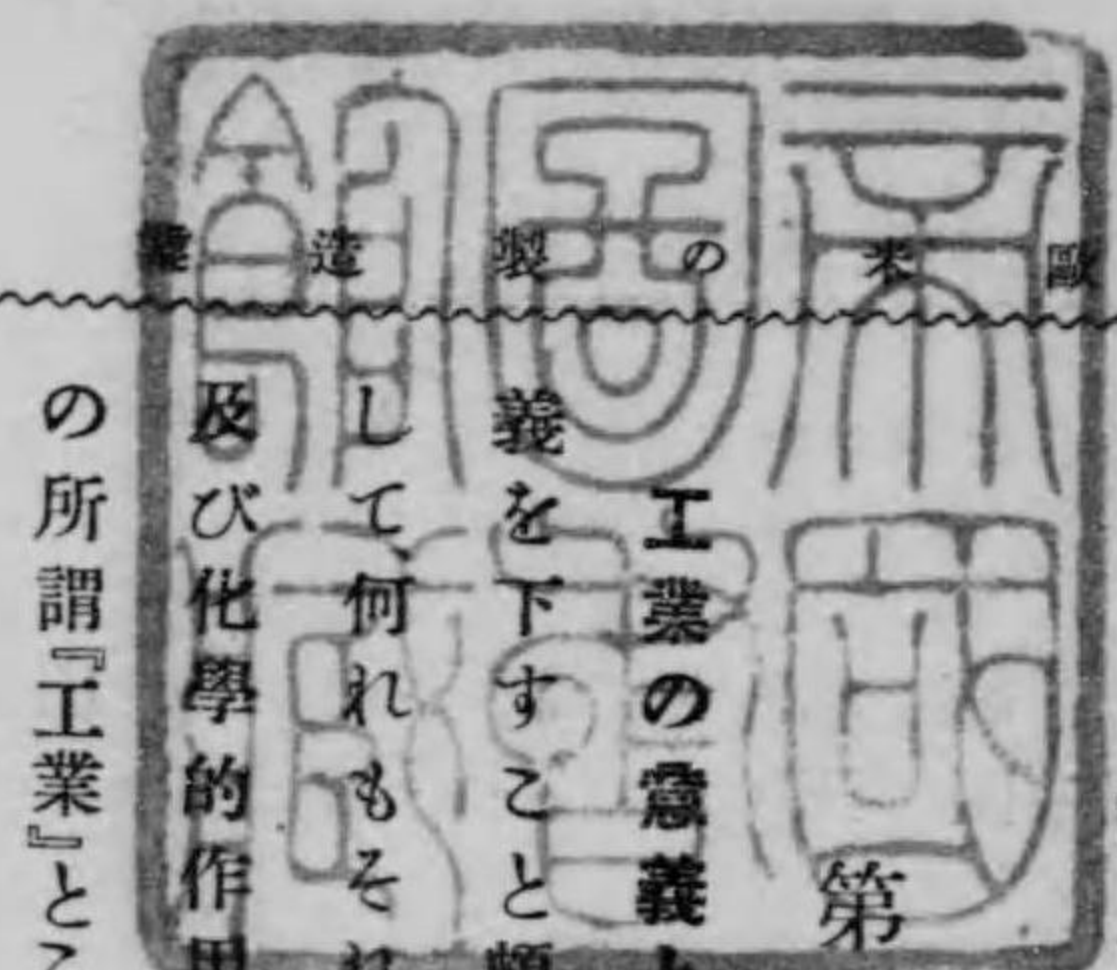 歐米の製造業
第
工業の意義
義を下すこと
して、何れもそれ
及び化學的作用
の所謂『工業』とこ
帝國
圖書
館藏